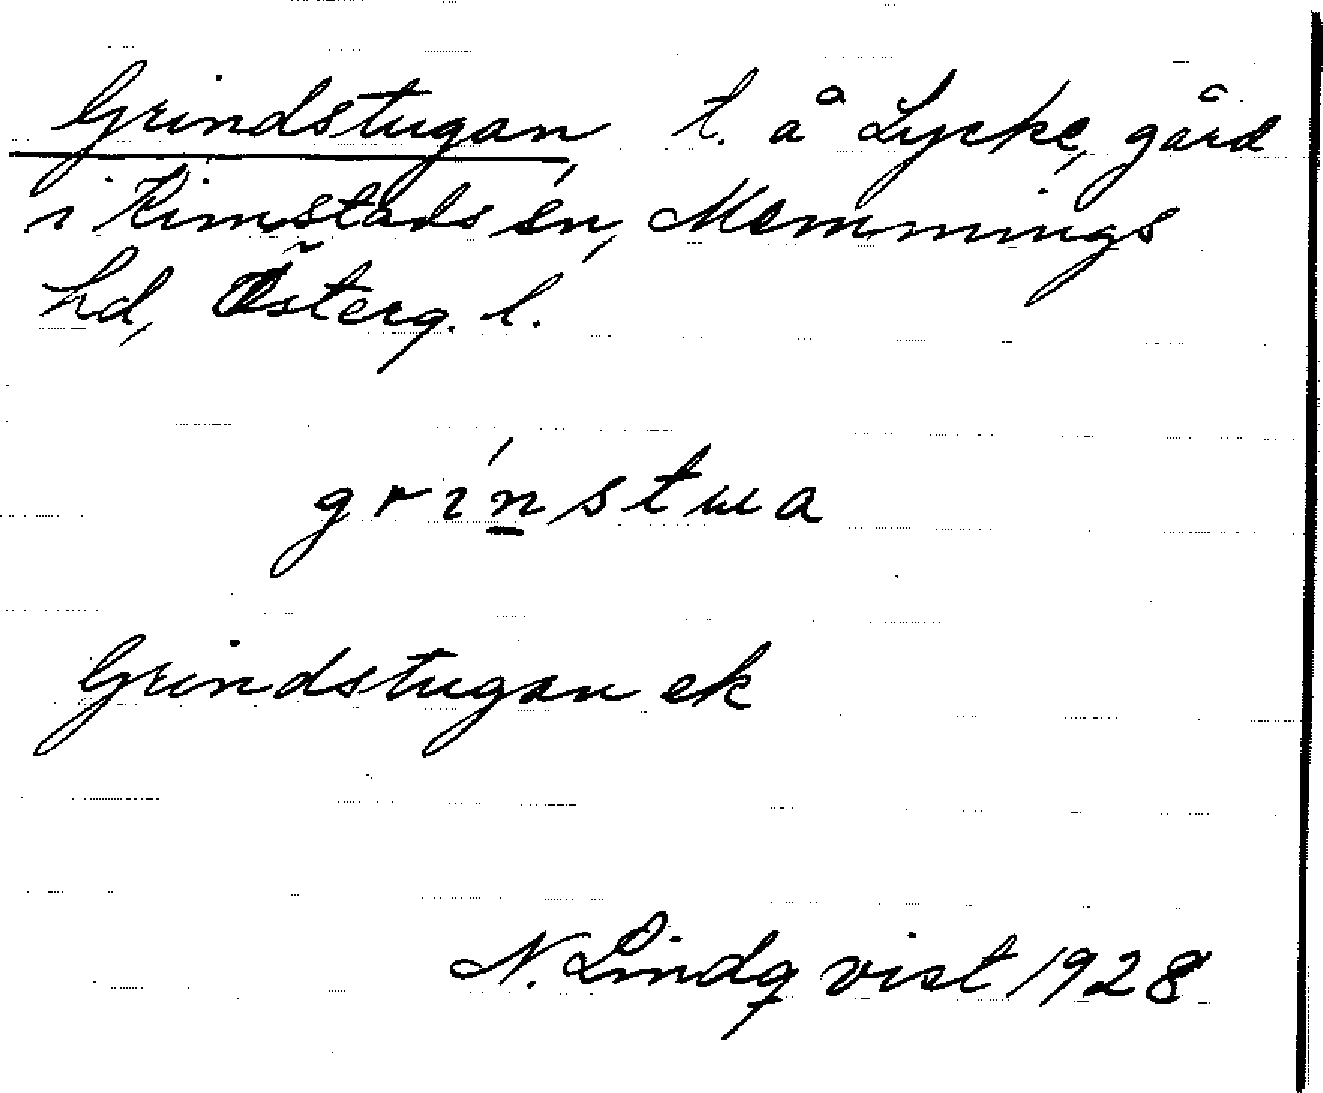 Grindstugan, t. å Lycke, gård
i Kimstads sn, Memmings
hd, Österg. l.
griń̲stɯa
Grindstugan ek
N. Lindqvist 1928